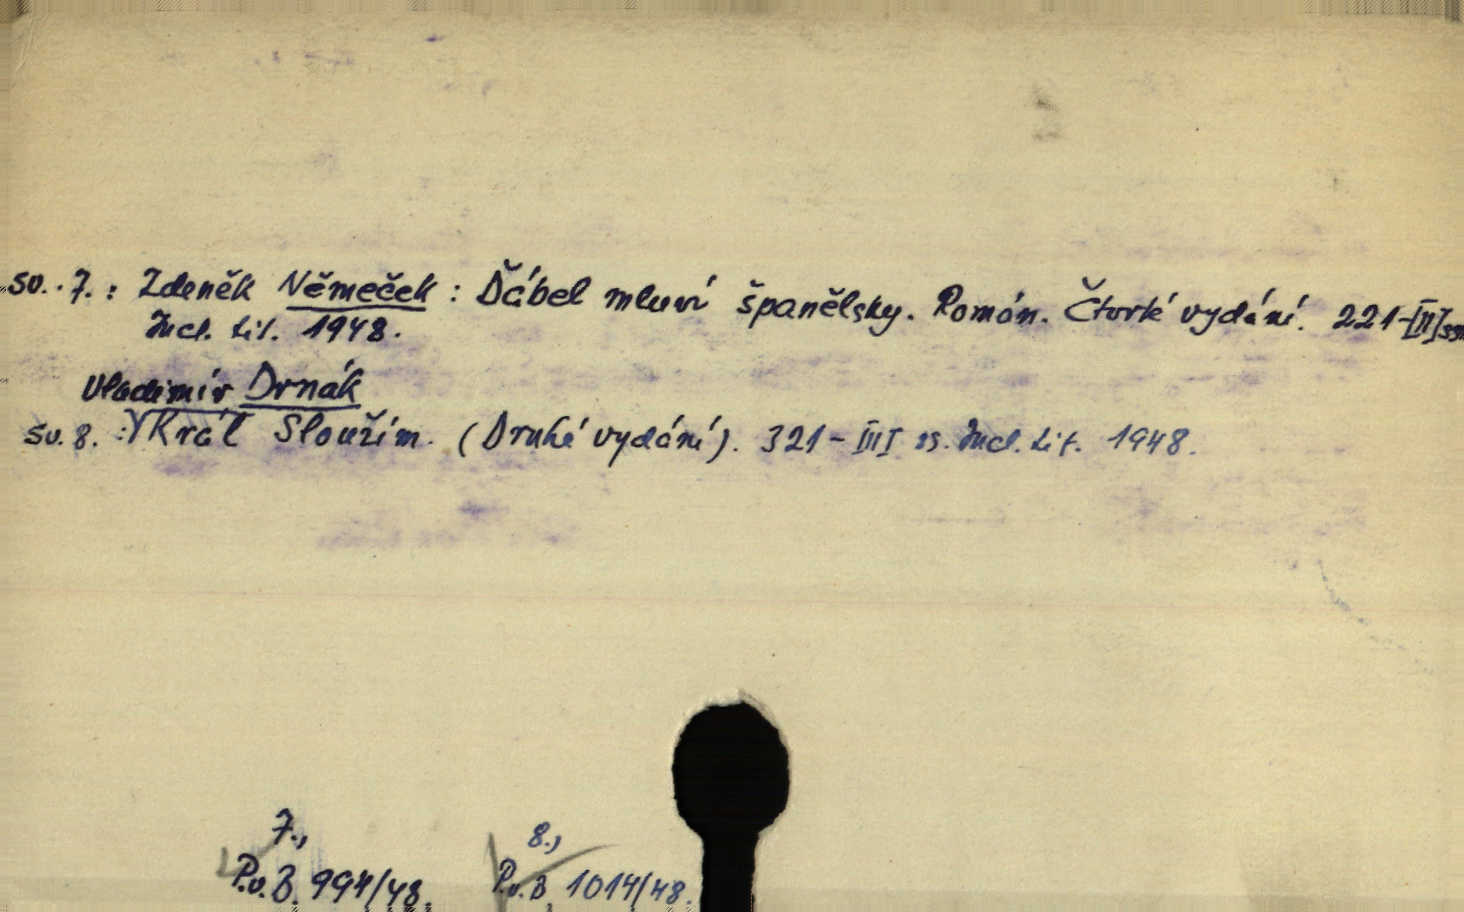 sv. 7. : Zdeněk Němeček : Ďábel mluví španělsky. Román. Čtvrté vydání. 221-[II] ss
Incl. Lit. 1948.
Vladimír Drnák
sv. 8. : Král Sloužím. (Druhé vydání). 321- III ss. Incl. Lit. 1948.
7., 8.,
P.v.B. 994/48. P.v.B. 1014/48.